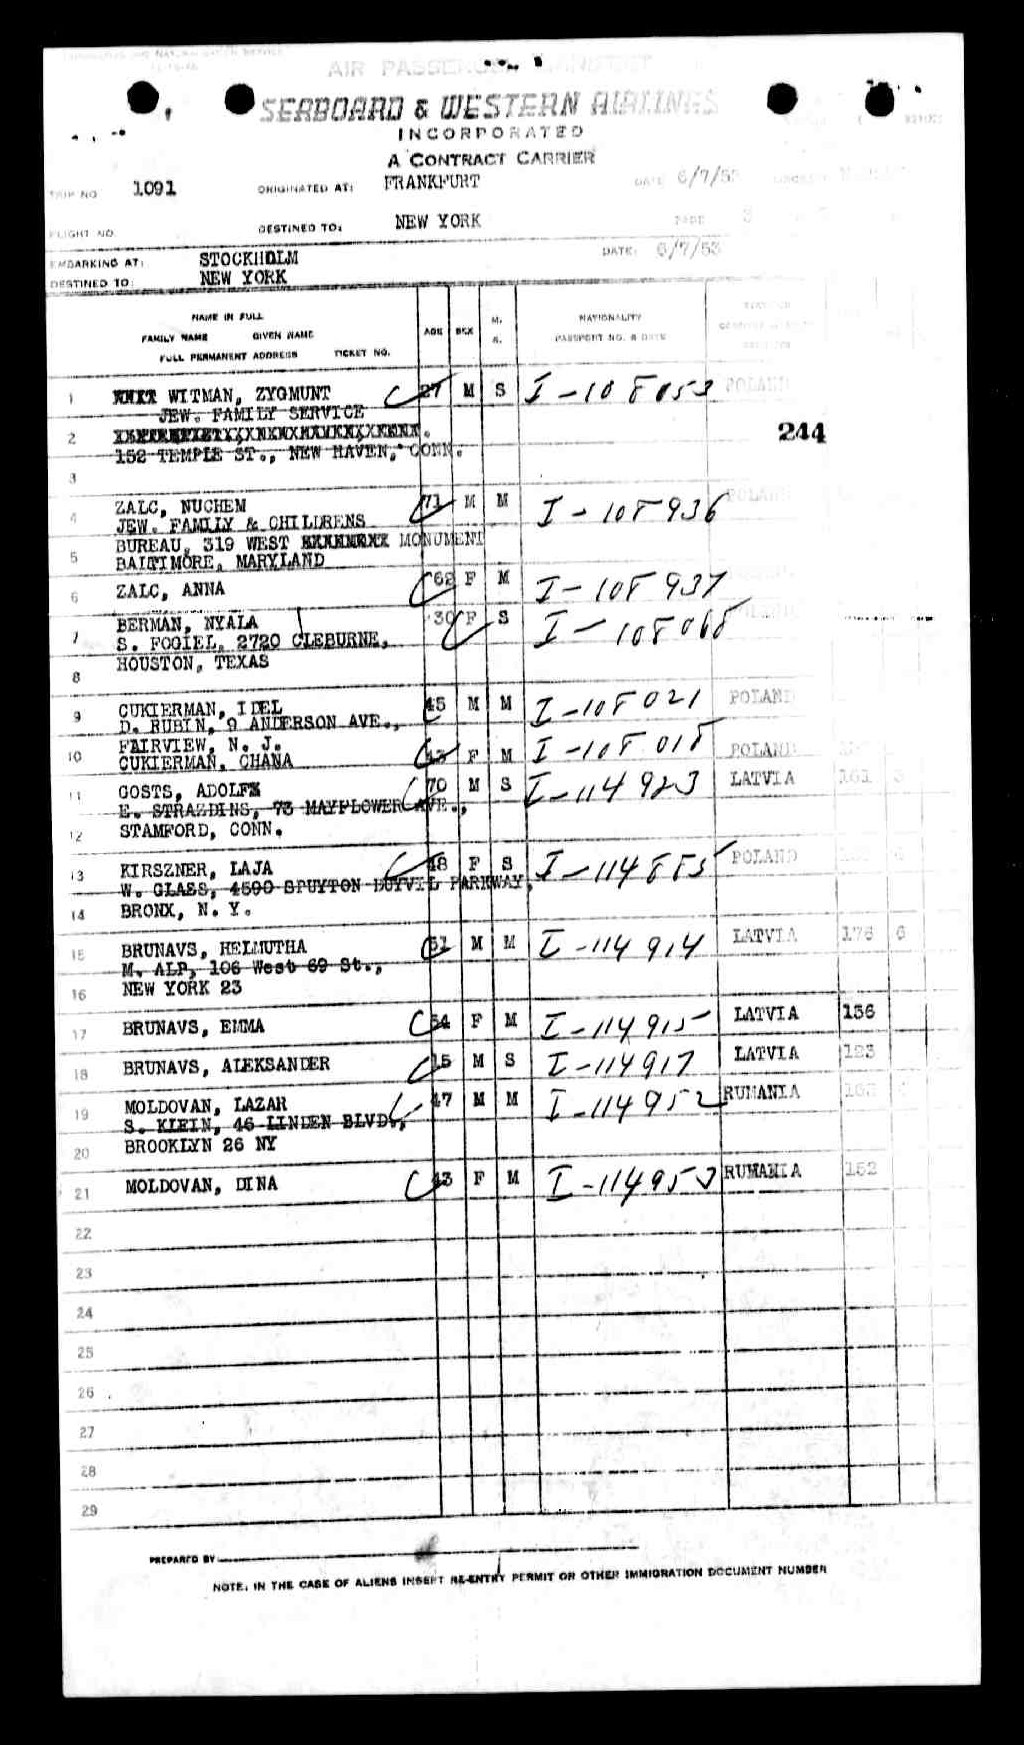 AIR PASSENGER MANIFEST
SEABOARD & WESTERN AIRLINES
INCORPORATED
A CONTRACT CARRIER
TRIP NO. 1091 ORIGINATED AT: FRANKFURT DATE 6/7/53
FLIGHT NO. DESTINED TO: NEW YORK PAGE 3
EMBARKING AT: STOCKHOLM DATE: 6/7/53
DESTINED TO: NEW YORK
NAME IN FULL
FAMILY NAME GIVEN NAME AGE SEX M. S. NATIONALITY
FULL PERMANENT ADDRESS TICKET NO. PASSPORT NO. & DATE
1 WITMAN, ZYGMUNT 27 M S I-108053 POLAND
JEW. FAMILY SERVICE
2 244
152 TEMPLE ST., NEW HAVEN, CONN.
3
4 ZALC, NUCHEM 71 M M I-108936 POLAND
JEW. FAMILY & CHILDRENS
5 BUREAU, 319 WEST MONUMENT
BALTIMORE, MARYLAND
6 ZALC, ANNA 62 F M I-108937
7 BERMAN, NYALA 30 F S I-108068 POLAND
S. FOGIEL, 2720 CLEBURNE,
8 HOUSTON, TEXAS
9 CUKIERMAN, IDEL 45 M M I-108021 POLAND
D. RUBIN, 9 ANDERSON AVE.,
10 FAIRVIEW, N. J.
CUKIERMAN, CHANA 43 F M I-108018 POLAND
11 GOSTS, ADOLFS 70 M S I-114923 LATVIA 161 3
E. STRAZDINS, 73 MAYFLOWER AVE.,
12 STAMFORD, CONN.
13 KIRSZNER, LAJA 48 F S I-114885 POLAND
W. GLASS, 4590 SPUYTON DUYVIL PARKWAY,
14 BRONX, N. Y.
15 BRUNAVS, HELMUTHA 51 M M I-114914 LATVIA 176 6
M. ALP, 106 West 69 St.,
16 NEW YORK 23
17 BRUNAVS, EMMA 54 F M I-114915 LATVIA 136
18 BRUNAVS, ALEKSANDER 15 M S I-114917 LATVIA 123
19 MOLDOVAN, LAZAR 47 M M I-114952 RUMANIA
S. KLEIN, 46 LINDEN BLVD.,
20 BROOKLYN 26 NY
21 MOLDOVAN, DINA 43 F M I-114953 RUMANIA 152
22
23
24
25
26
27
28
29
PREPARED BY
NOTE: IN THE CASE OF ALIENS INSERT RE-ENTRY PERMIT OR OTHER IMMIGRATION DOCUMENT NUMBER